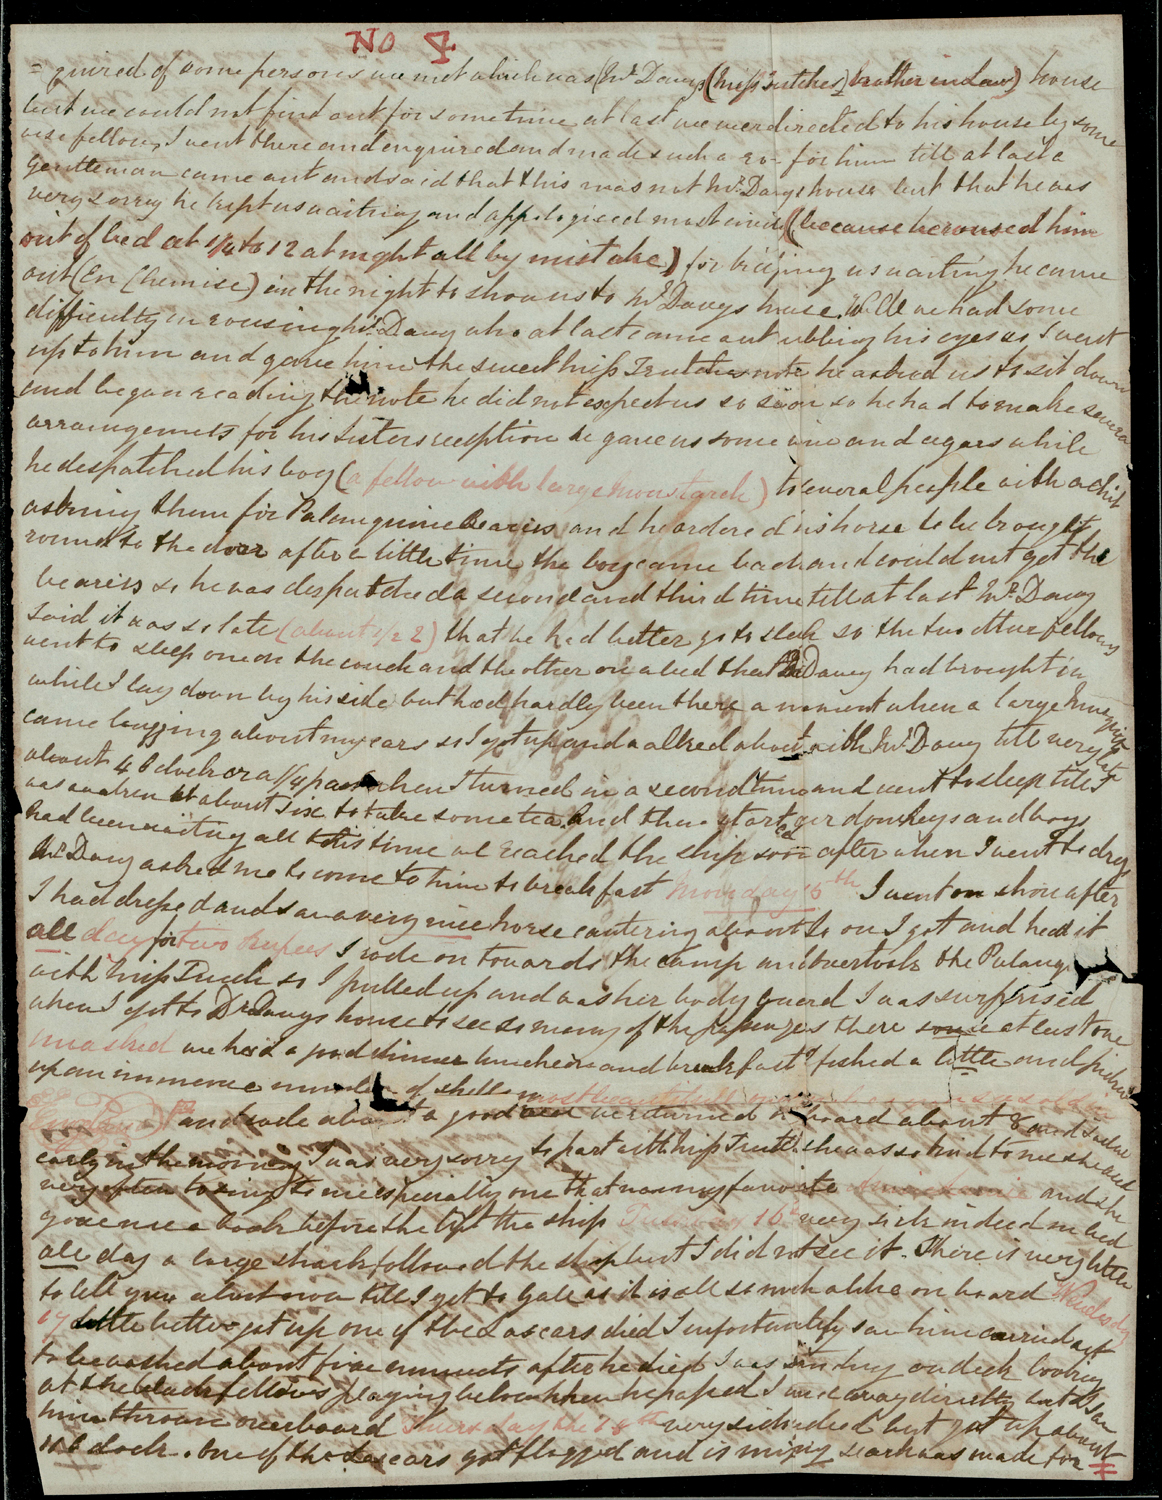 No 4
= quired of some persons we met which was (Mr Davys (Miss Trutches) brother in law) house
but we could not find out for some time at last we were directed to his house by some
wise fellow, I went there and enquired and made such a ro- for him till at last a
gentleman came out and said that this was not Mr Davys house but that he was
very sorry he kept us waiting and appologiced most (because we roused him
out of bed at 1/4 to 12 at night all by mistake) for keeping us waiting he came
out (En Chemise) in the night to show us to Mr Davys house. Well we had some
difficulty in rousing Mr Davy who at last came out rubbing his eyes so I went
up to him and gave him the sweet Miss Trutches note he asked us to sit down
and began reading the note he did not expect us so soon so he had to make several
arrangemets for his Sisters reception he gave us some wine and cigars while
he despatched his boy (a fellow with large moustarch) to several people with a chit
asking them for Palanquine Bearers and he ordered his horse to be brought
round to the door after a little time the boy came back and could not get the
bearers so he was despatched a second and third time till at last Mr Davy
said it was so late (about 1/2 2) that we had better go to sleek so the two other fellows
went to sleep one on the couch and the other on a bed that Mr Davy had brought in
while I lay down by his side but had hardly been there a moment when a large Musquito
came buzzing about my ears so I got up and walked about with Mr Davy till very late
about 4 o clock or a 1/4 past when I turned in a second time and went to sleep till I
was awaken at about Six to take some tea. And then started our donkeys and boys
had been waiting all this time we reached the ship soon after when I went to dress
Mr Davy asked me to come to him to breakfast Monday 15th I went on shore after
I had dressed and saw a very nice horse cantering about so on I got and had it
all day for two Rupees I rode on towards the camp and overtook the Palanq
with Miss Trutch so I pulled up and was her body guard I was surprised
when I got to Dr Davys house to see so many of the passengers there some at least one
unasked we had a good dinner luncheon and breakfast I fished a little and picked
up an immence number of shells most beautiful
England) and rode about a good deal we returned on board about 8 and
early in the morning I was very sorry to part with Miss Trutch she was so kind to me she used
very often to sing to me especially one that was my favorite and she
gave me a book before she left the ship Tuesday 16th very sick indeed in bed
all day a large shark followed the ship but I did not see it. There is very little
to tell you about now till I get to Gale as it is all so much alike on board Wednesday
17 little better got up one of the Lascars died I unfortunately saw him carried aft
to be washed about five minuets after he died I was standing on deck looking
at the black fellows playing below when he passed I went away directly but I saw
him thrown overboard Thursday the 18th very sick indeed but got up about
11 o clock. One of the Lascars got flogged and is missing search was made for